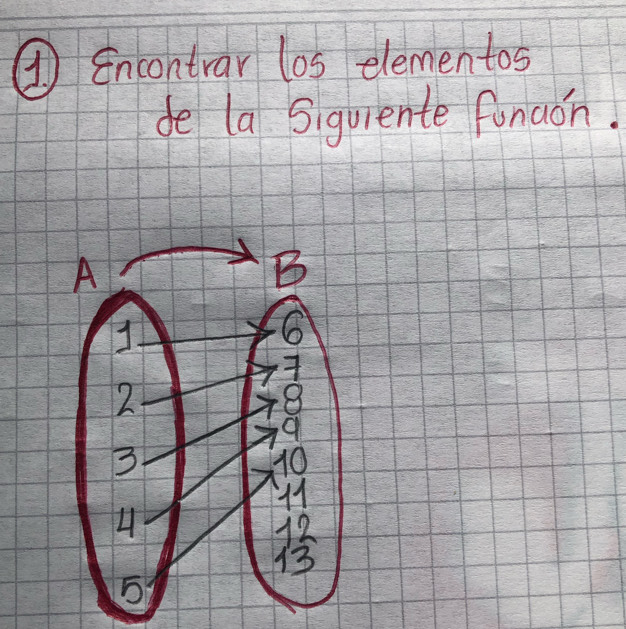 1. Encontrar los elementos
de la siguiente función.
A B
1 6
2 7
3 8
4 9
5 10
11
12
13